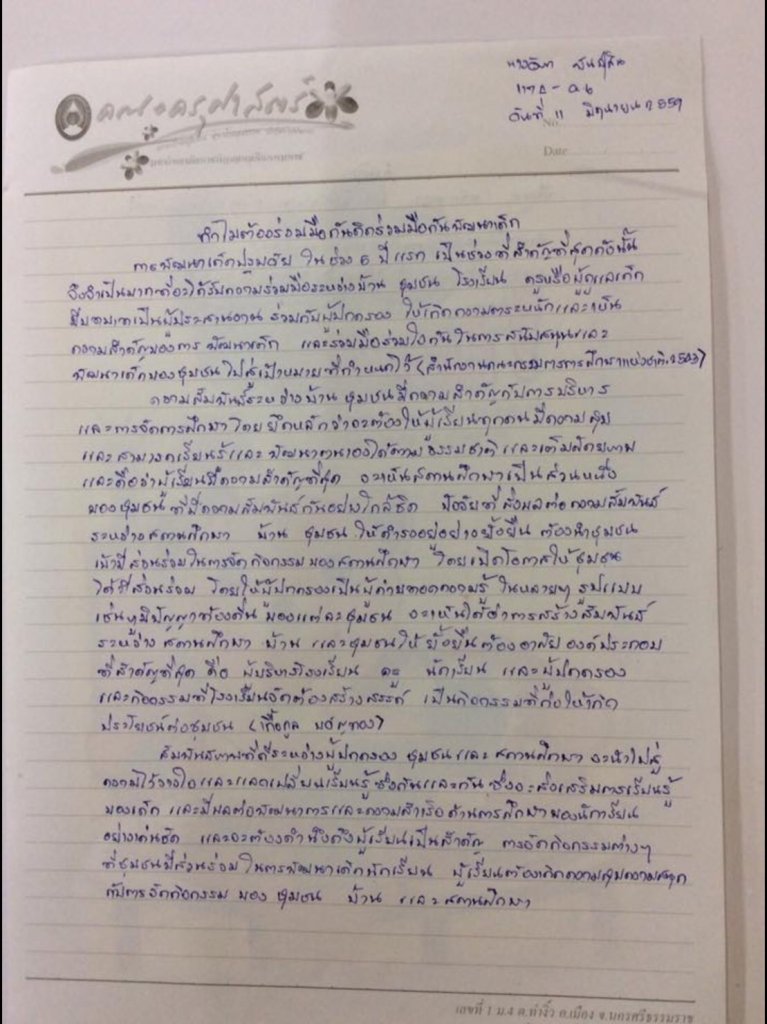 คณะครุศาสตร์
วันที่ 11 มิถุนายน 2559
No.
Date
ทำไมต้องร่วมมือกันคิดร่วมมือกันพัฒนาเด็ก
การพัฒนาเด็กปฐมวัย ในช่วง 6 ปีแรก เป็นช่วงที่สำคัญที่สุดดังนั้น
จึงจำเป็นมากที่จะได้รับความร่วมมือระหว่างบ้าน ชุมชน โรงเรียน ครูหรือผู้ดูแลเด็ก
เป็นผู้ประสานงาน ร่วมกับผู้ปกครอง ให้เกิดความตระหนักและเห็น
ความสำคัญของการ พัฒนาเด็ก และร่วมมือร่วมใจกันในการสนับสนุนและ
พัฒนาเด็กของชุมชน ไปสู่เป้าหมายที่กำหนดไว้ (สำนักงานคณะกรรมการการศึกษาแห่งชาติ. 2543)
ความสัมพันธ์ระหว่างบ้าน ชุมชนมีความสำคัญกับการบริหาร
และการจัดการศึกษา โดยยึดหลักว่าจะต้องให้ผู้เรียนทุกคนมีความสุข
และสามารถเรียนรู้และพัฒนาตนเองได้ตามธรรมชาติและเต็มศักยภาพ
และถือว่าผู้เรียนมีความสำคัญที่สุด จะเห็นสถานศึกษาเป็นส่วนหนึ่ง
ของชุมชนที่มีความสัมพันธ์กันอย่างใกล้ชิด ปัจจัยที่ส่งผลต่อความสัมพันธ์
ระหว่างสถานศึกษา บ้าน ชุมชน ให้ดำรงอยู่อย่างยั่งยืน ต้องนำชุมชน
เข้ามีส่วนร่วมในการจัดกิจกรรมของสถานศึกษา โดยเปิดโอกาสให้ชุมชน
ได้มีส่วนร่วม โดยให้ผู้ปกครองเป็นผู้ถ่ายทอดความรู้ ในหลายๆ รูปแบบ
เช่นภูมิปัญญาท้องถิ่น ของแต่ละชุมชน จะเห็นได้ว่าการสร้างสัมพันธ์
ระหว่าง สถานศึกษา บ้าน และชุมชนให้ยั่งยืนต้องอาศัยองค์ประกอบ
ที่สำคัญที่สุด คือ ผู้บริหารโรงเรียน ครู นักเรียน และผู้ปกครอง
และกิจกรรมที่โรงเรียนจัดต้องสร้างสรรค์ เป็นกิจกรรมที่ก่อให้เกิด
ประโยชน์ต่อชุมชน (เกื้อกูล
สัมพันธภาพที่ดีระหว่างผู้ปกครอง ชุมชนและสถานศึกษา จะนำไปสู่
ความไว้วางใจและแลกเปลี่ยนเรียนรู้ซึ่งกันและกัน ซึ่งจะส่งเสริมการเรียนรู้
ของเด็ก และมีผลต่อพัฒนาการและความสำเร็จด้านการศึกษาของนักเรียน
อย่างเด่นชัด และจะต้องคำนึงถึงผู้เรียนเป็นสำคัญ การจัดกิจกรรมต่างๆ
ที่ชุมชนมีส่วนร่วมในการพัฒนาเด็กนักเรียน ผู้เรียนต้องเกิดความสุขความสนุก
กับการจัดกิจกรรม ของ ชุมชน บ้าน และสถานศึกษา
เลขที่ 1 ม.4 ต.ท่างิ้ว อ.เมือง จ.นครศรีธรรมราช